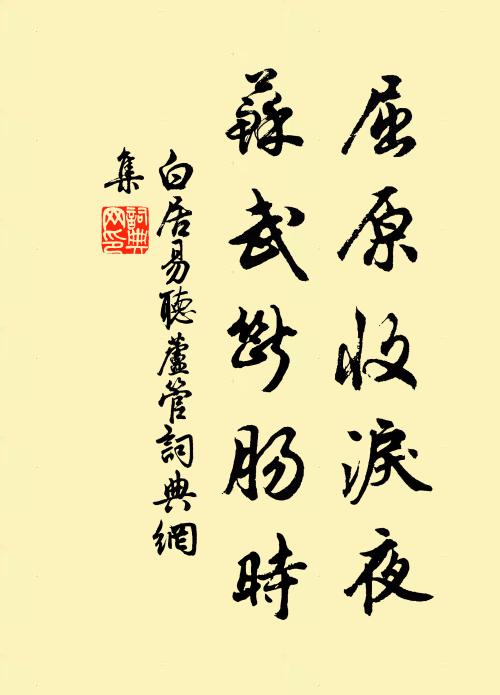 屈原收淚夜
蘇武斷腸時
白居易聽蘆管詞典網
集
詞典
网印